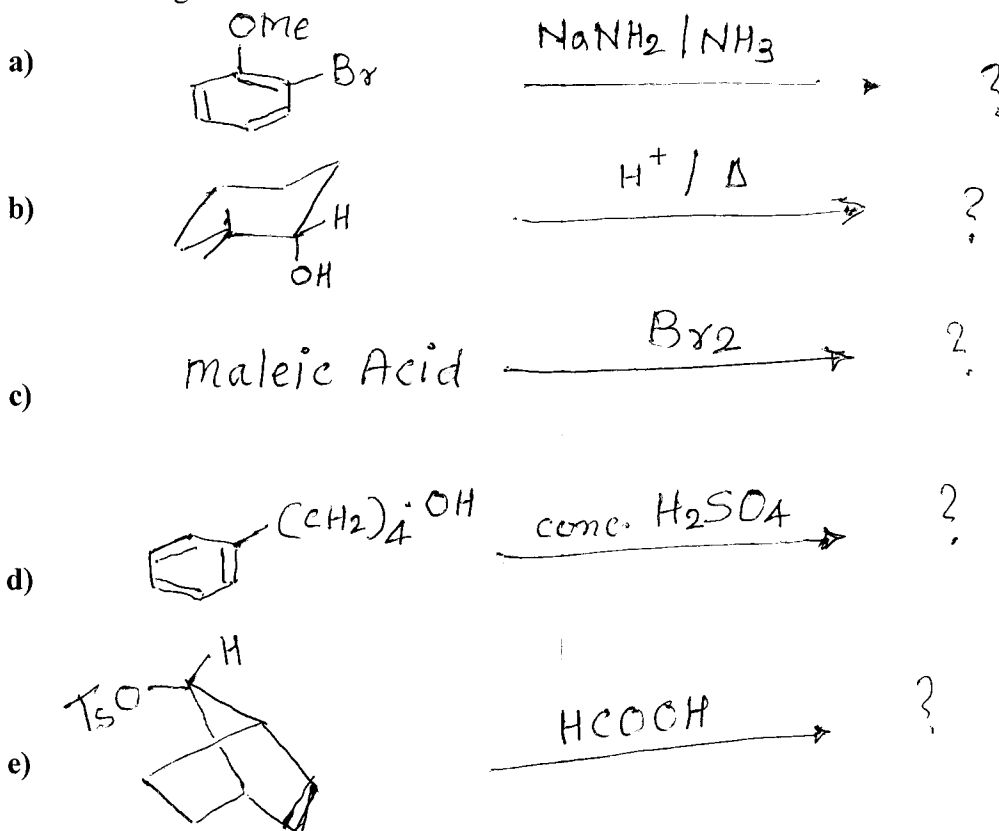 OMe
a) Br NaNH2 / NH3 ?
b) H OH H+ / Δ ?
c) maleic Acid Br2 ?
d) (CH2)4 OH conc. H2SO4 ?
e) TsO H HCOOH ?